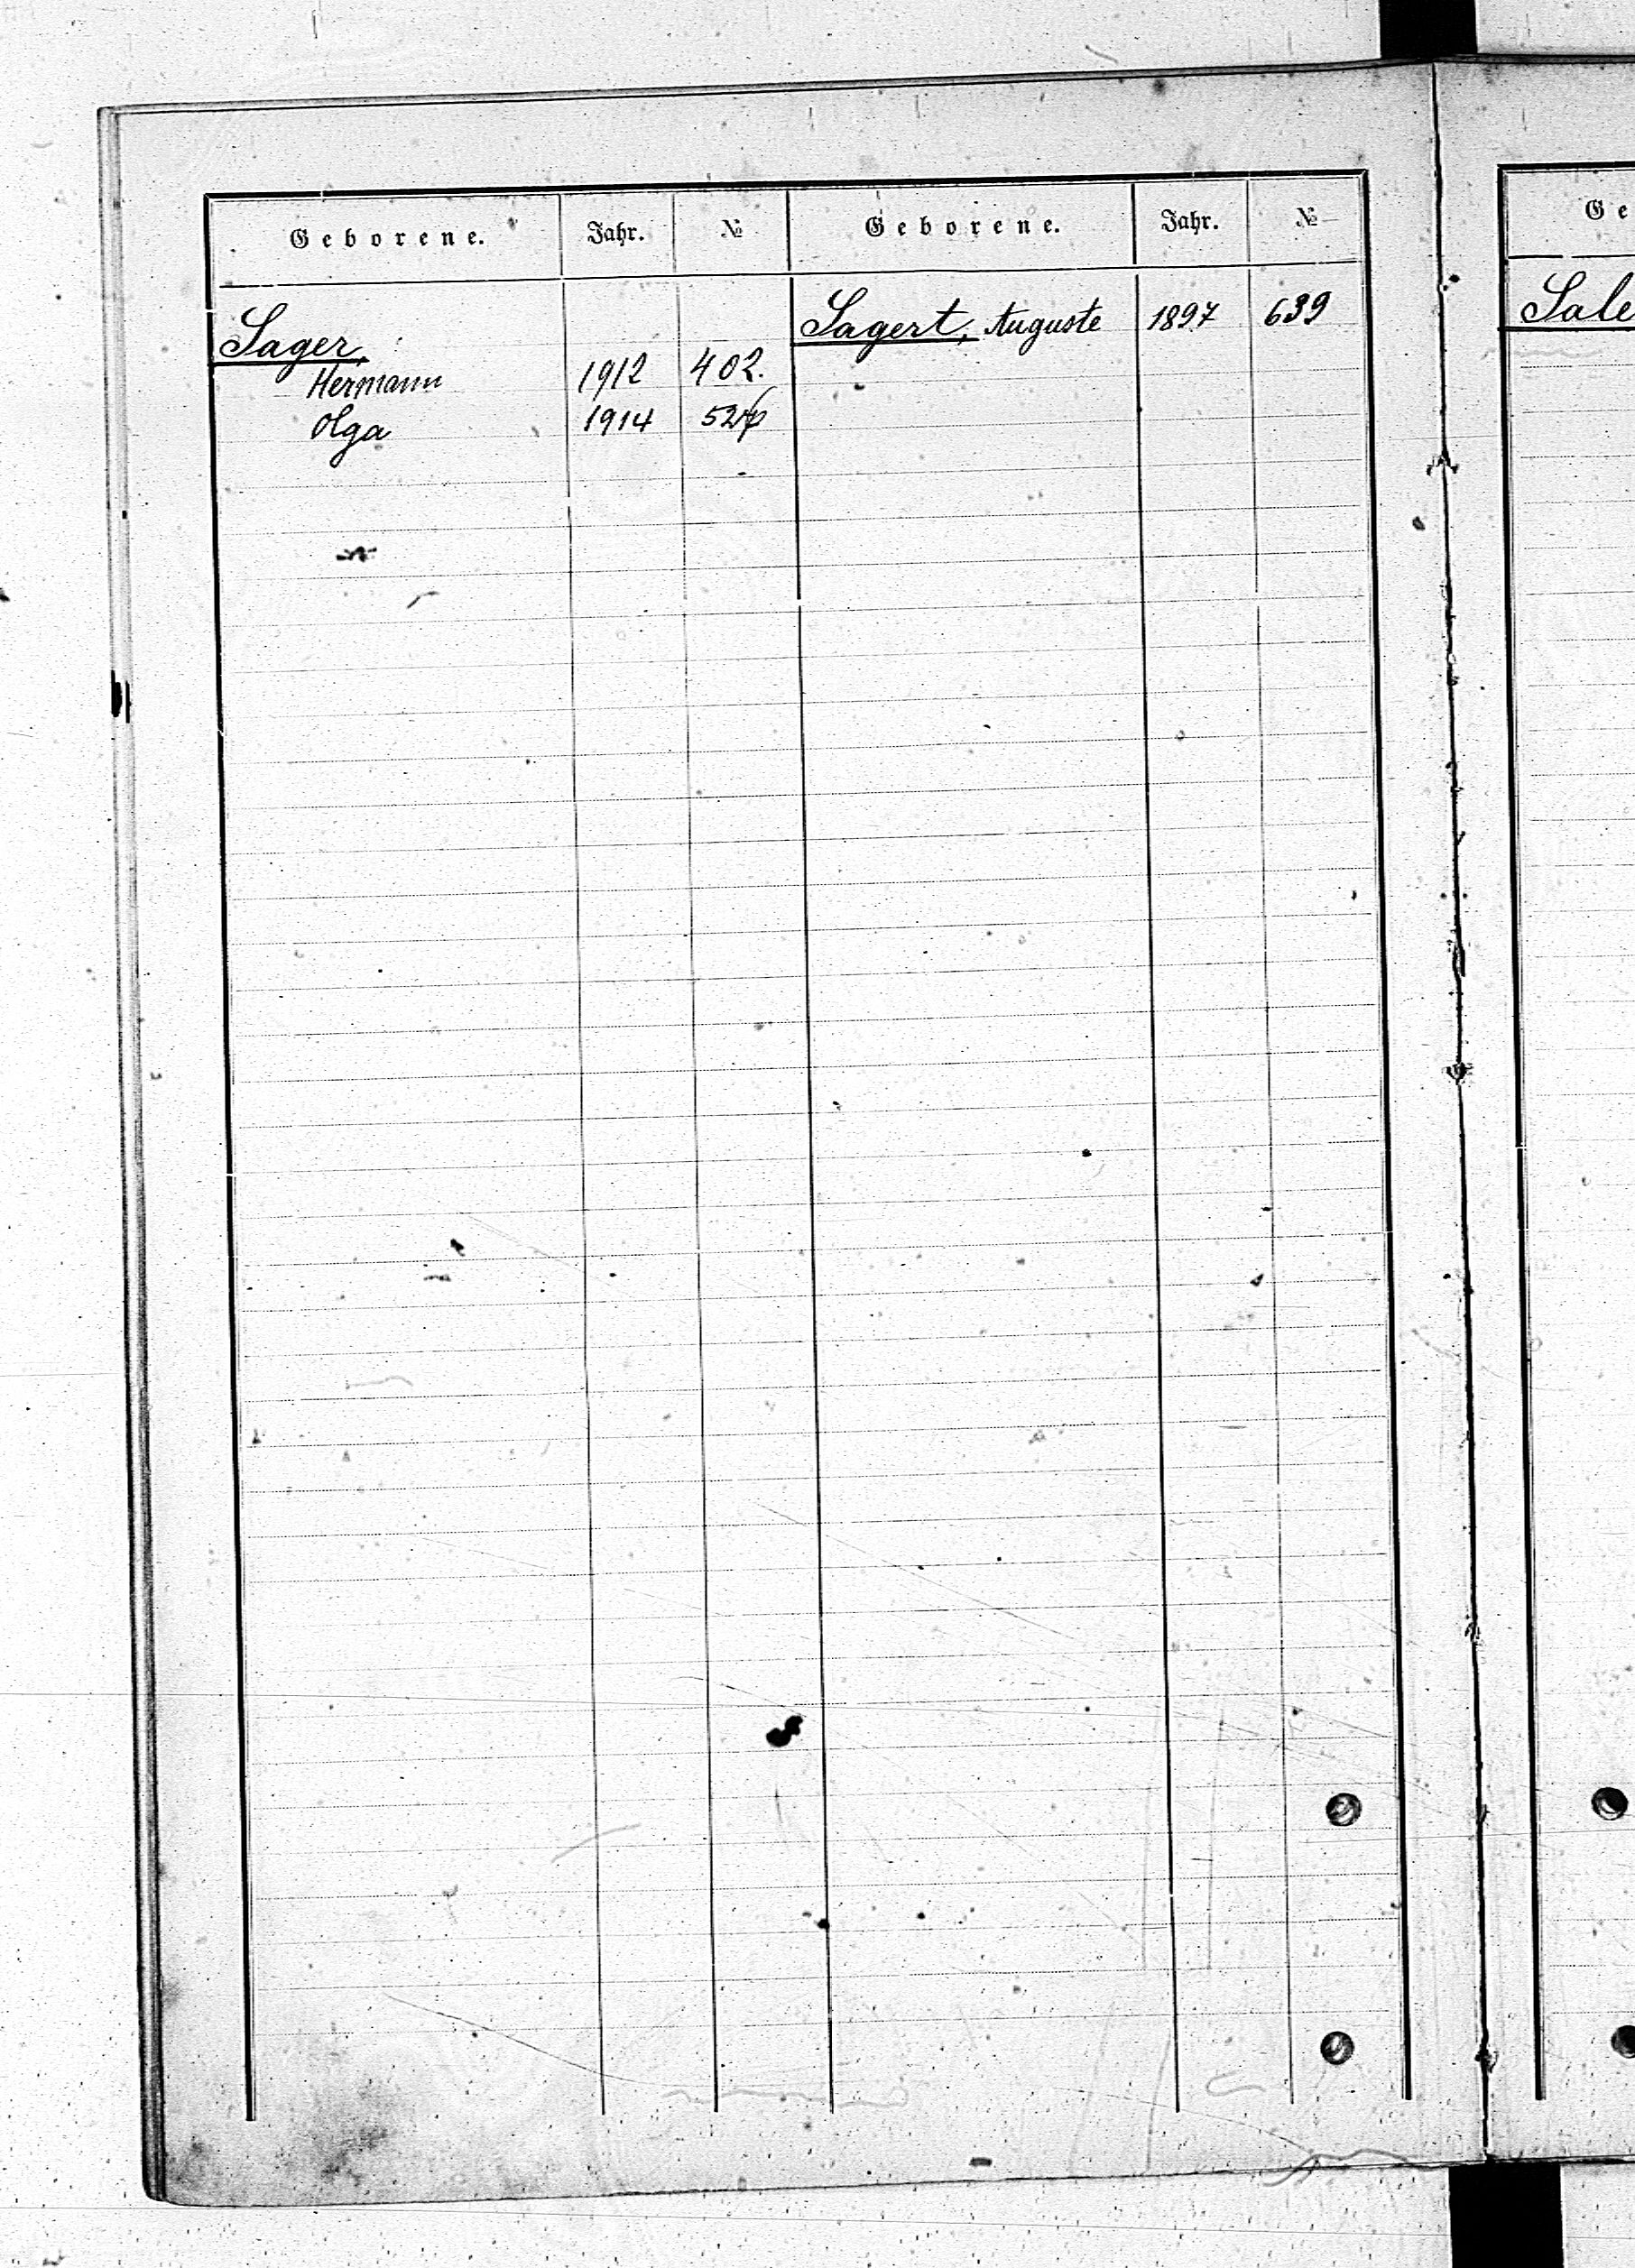 Geborene. Jahr. № Geborene. Jahr. №
Sager,
Hermann 1912 402.
Olga 1914
Sagert, Auguste 1897 639
Ge
Sale